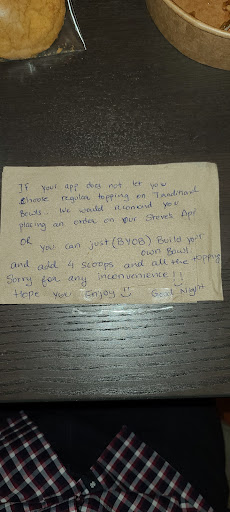 If your app does not let you
choose regular topping on Traditional
Bowls. We would recomend you
placing an order on our Steves App
OR you can just (BYOB) Build your
own Bowl.
and add 4 scoops and all the topping
Sorry for any inconvenience!!
Hope you enjoy Good Night